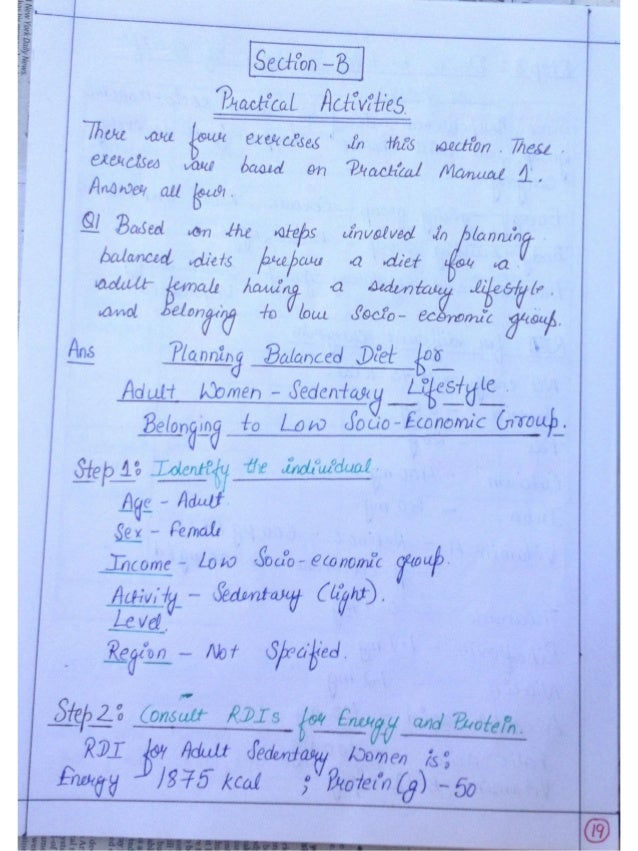 New York Daily News
Section-B
Practical Activities.
There are four exercises in this section. These
exercises are based on Practical Manual 1.
Answer all four.
Q1 Based on the steps involved in planning
balanced diets prepare a diet for a
adult female having a sedentary lifestyle.
and belonging to low Socio-economic group.
Ans Planning Balanced Diet for
Adult Women - Sedentary Lifestyle
Belonging to Low Socio-Economic Group.
Step 1: Identify the individual.
Age - Adult
Sex - Female
Income - Low Socio-economic group.
Activity - Sedentary (light).
Level.
Region - Not Specified.
Step 2: Consult RDIs for Energy and Protein.
RDI for Adult Sedentary Women is;
Energy - 1875 kcal ; Protein(g) - 50
19